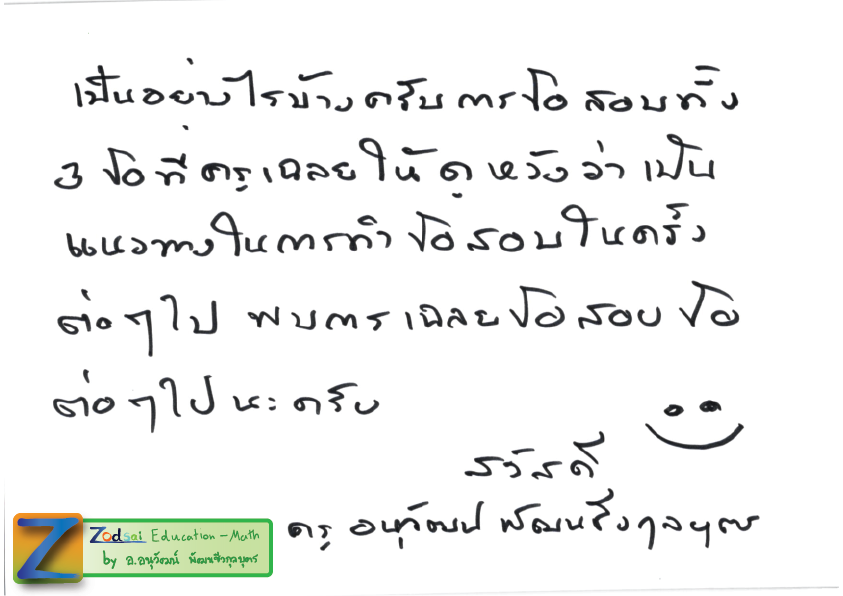 เป็นอย่างไรบ้างครับการข้อสอบทั้ง
3 ข้อที่ครูเฉลยให้ดู หวังว่าเป็น
แนวทางในการทำข้อสอบในครั้ง
ต่อๆไป พบการเฉลยข้อสอบข้อ
ต่อๆไปนะครับ
สวัสดี
ครู อนุวัฒน์ พัฒนชีวกุลบุตร
Z Zodsai Education - Math
by อ.อนุวัฒน์ พัฒนชีวกุลบุตร